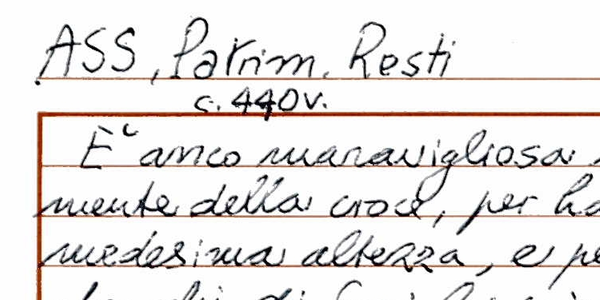 ASS, Patrim. Resti
c. 440v.
È anco maravigliosa
mente della croce, per
medesima altezza, e
di